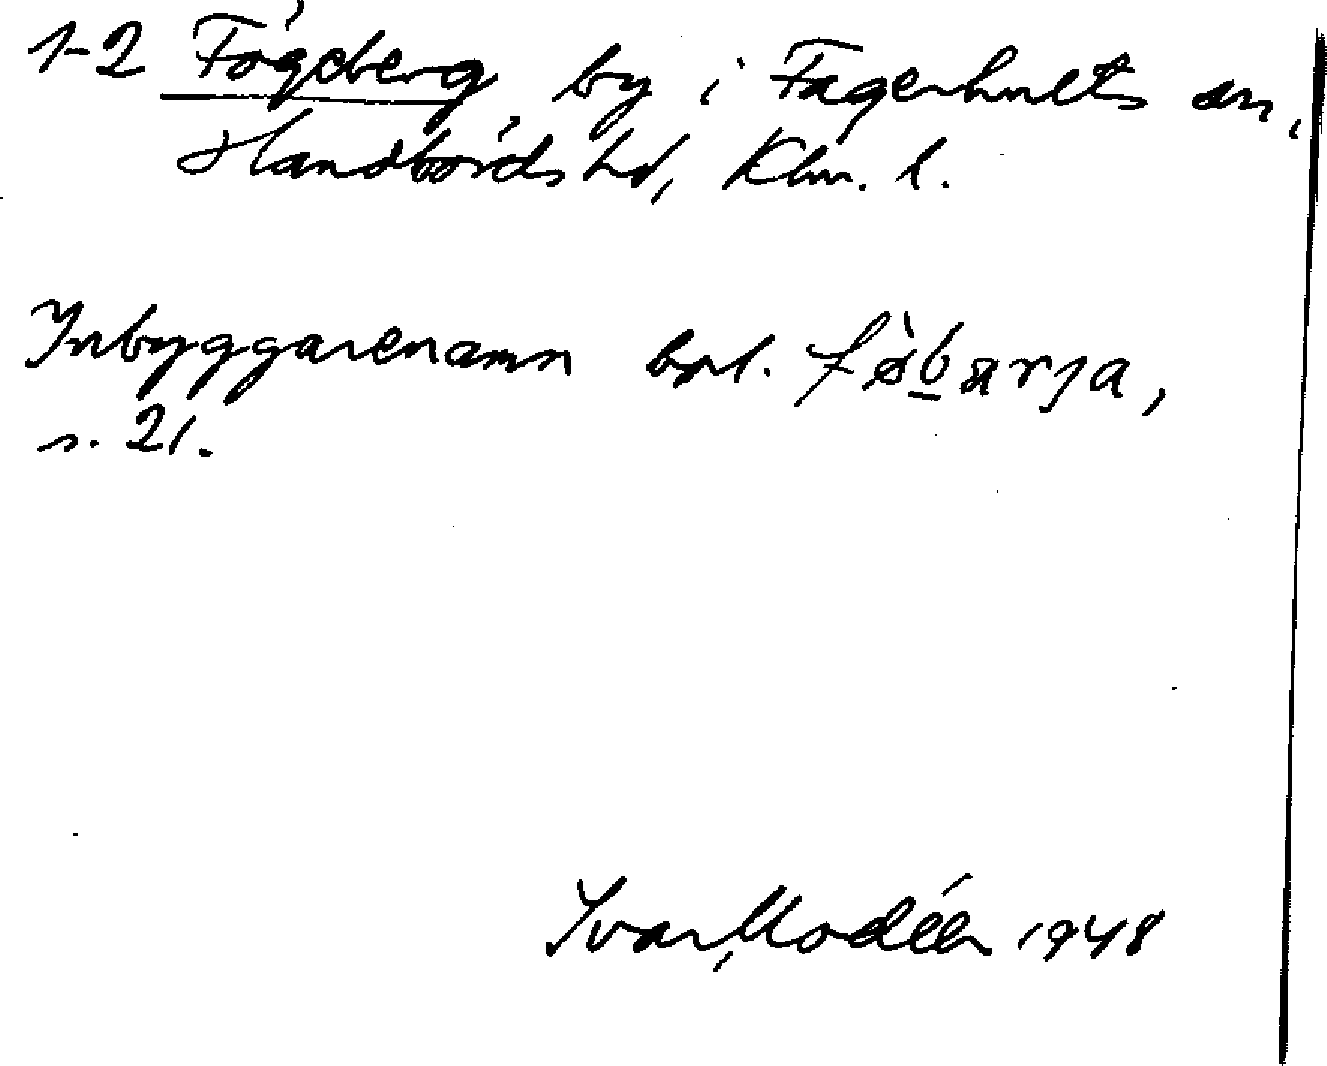 1-2 Fögeberg, by i Fagerhults sn,
Handbörds hd, Klm. l.
Inbyggarenamn bpl. fø̀barja,
s. 21.
Ivar Modéer 1948